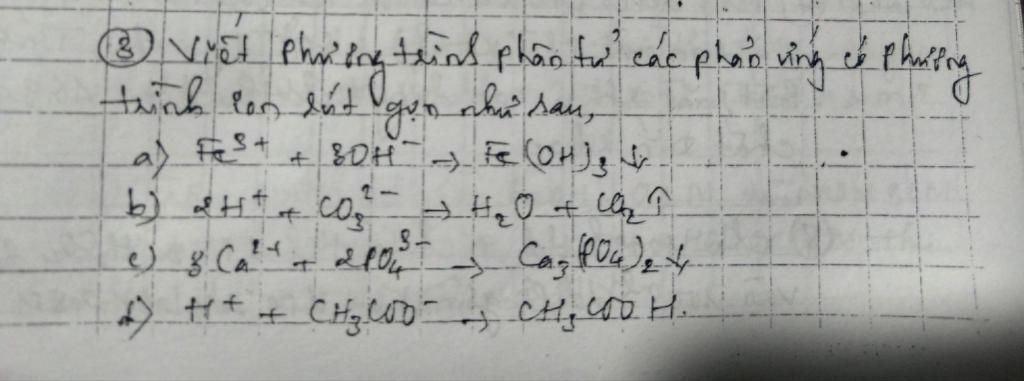 ③ Viết phương trình phân tử các phản ứng có phương
trình ion rút gọn như sau,
a) Fe³⁺ + 3OH⁻ → Fe(OH)₃ ↓
b) 2H⁺ + CO₃²⁻ → H₂O + CO₂ ↑
c) 3Ca²⁺ + 2PO₄³⁻ → Ca₃(PO₄)₂ ↓
d) H⁺ + CH₃COO⁻ → CH₃COOH.